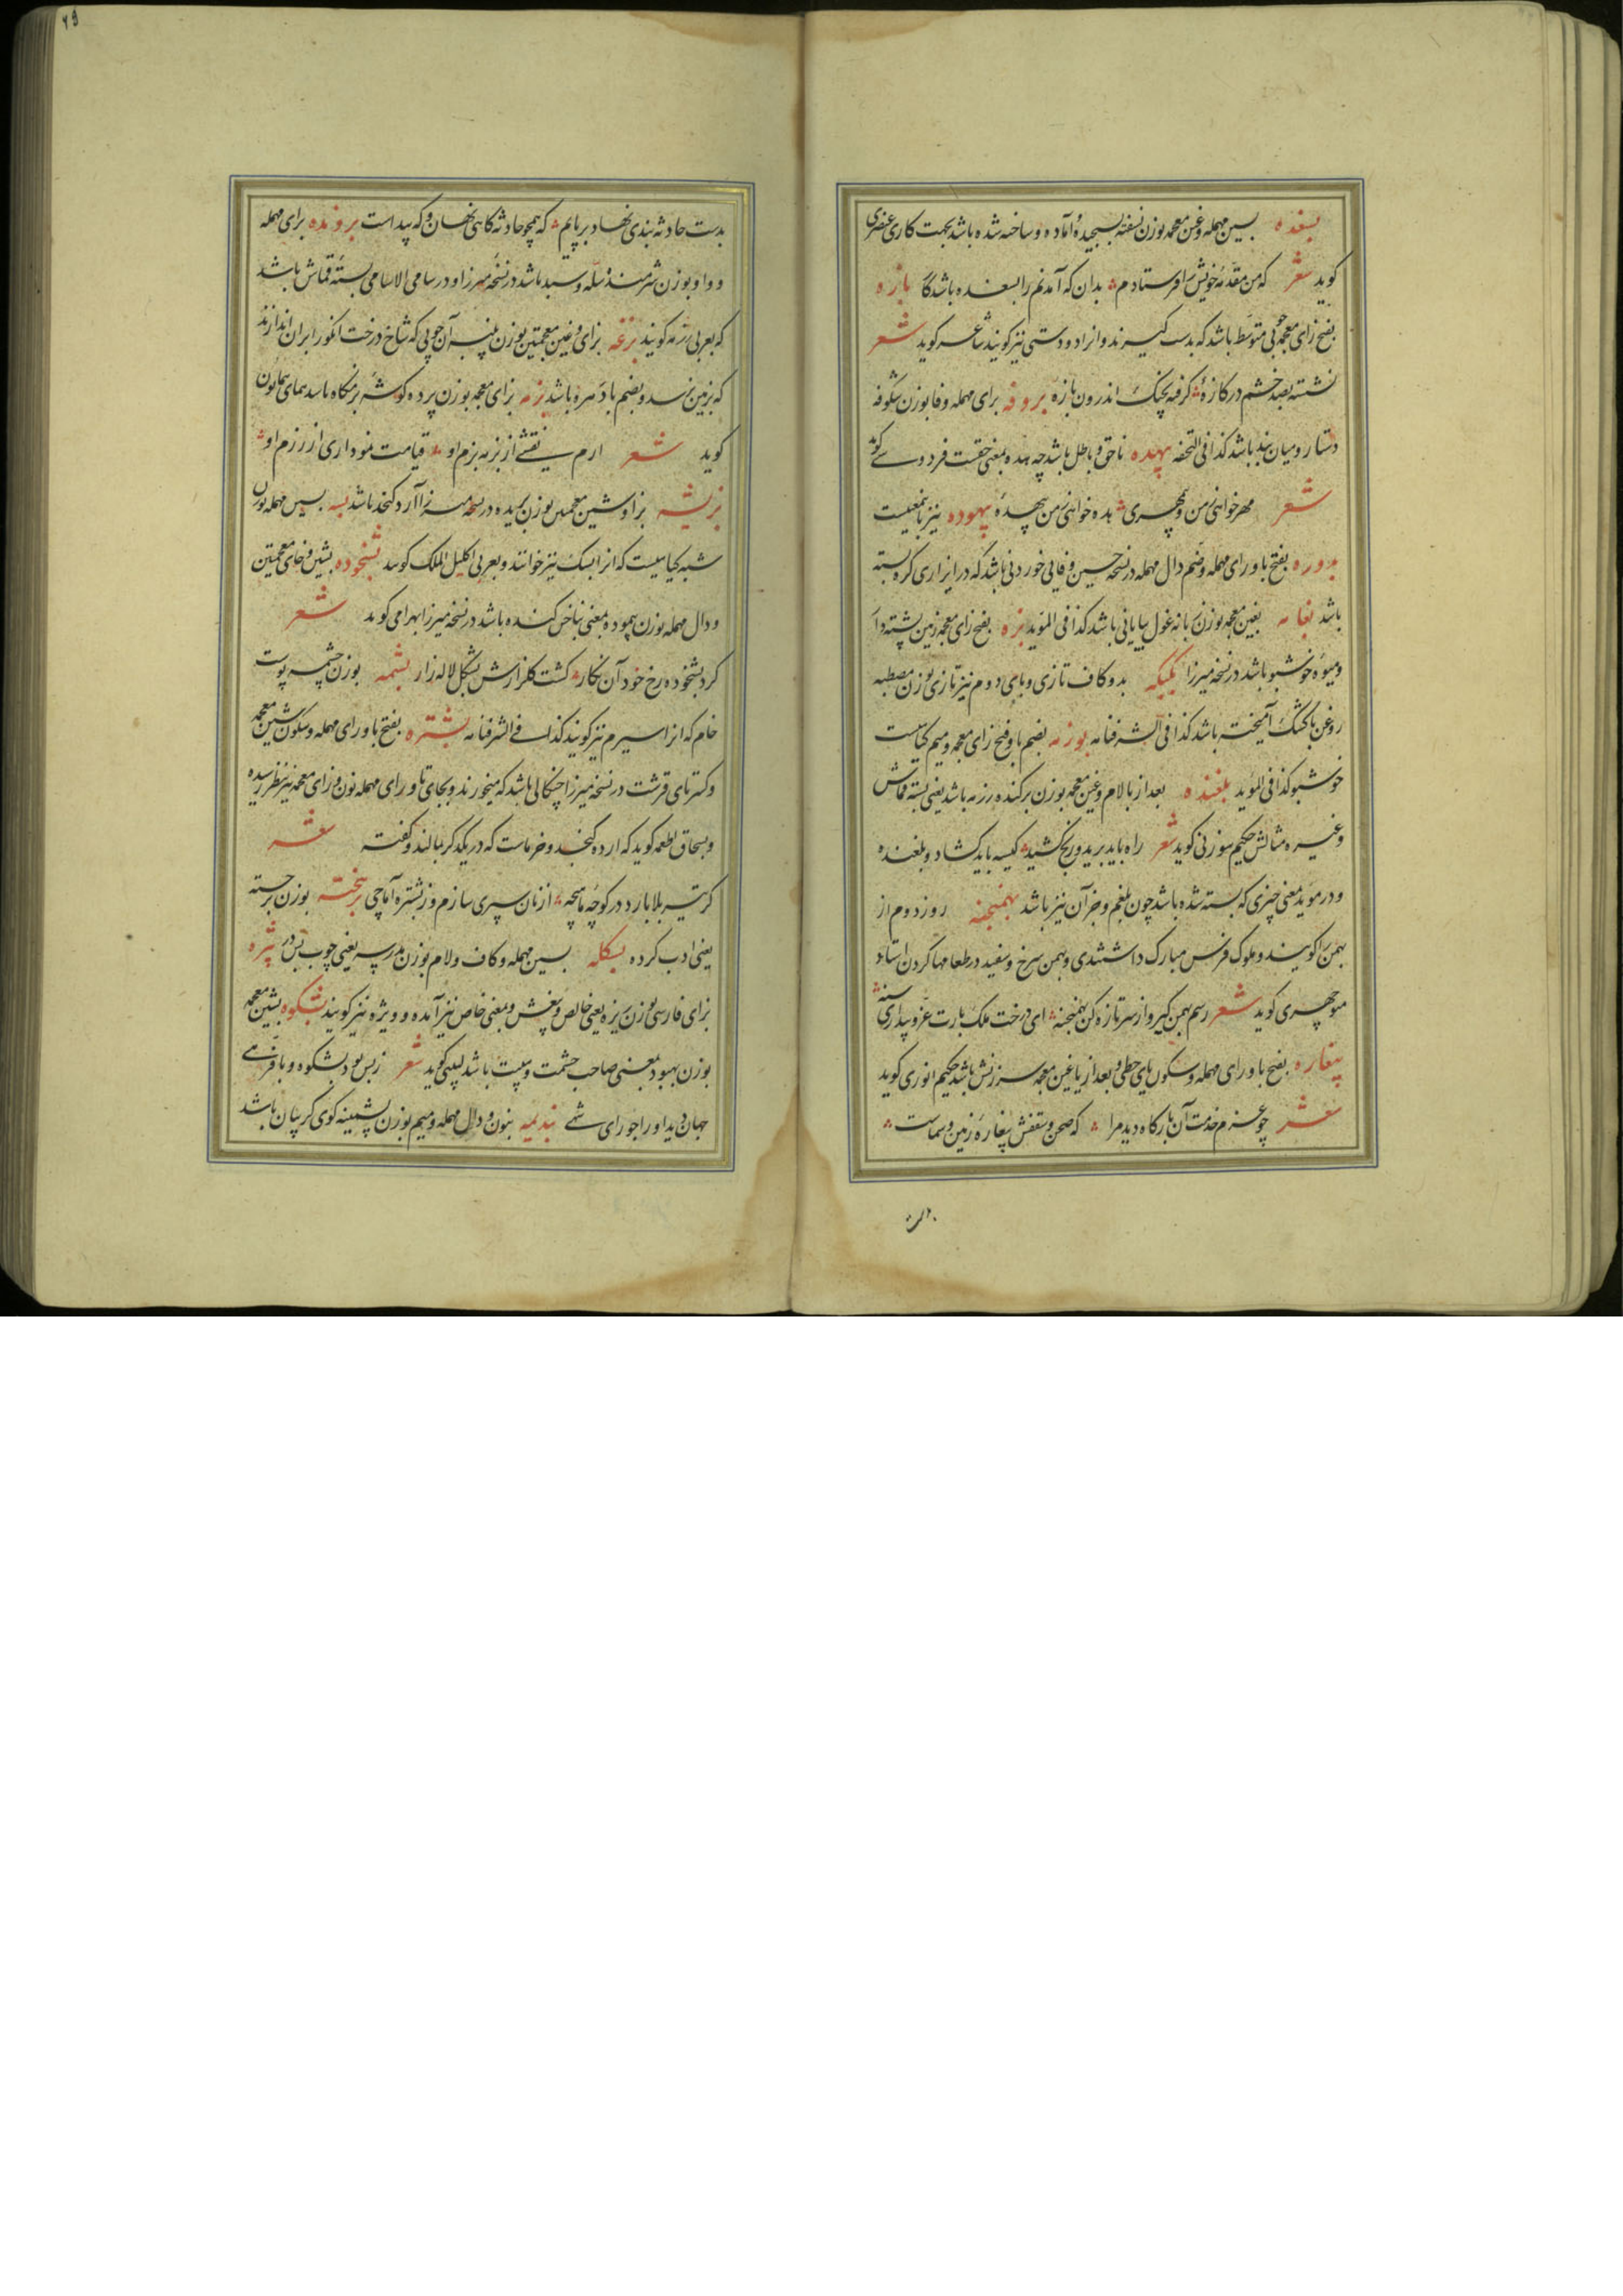 بسغده بسین مهمله و غین معجمه بوزن نسفته بسیجیده و آماده و ساخته شده باشد بجهت کاری عنصری
کوید شعر که من مقدمهٔ خویش را فرستادم بدان که آمدنم را بسغده باشد کا بازه
بفتح زای معجمه چوبی متوسط باشد که بدست کیرند و انرا دودستی نیز کویند شاعر کوید شعر
نشسته بصد خشم در کازهٔ کرفته بچنک اندرون بازهٔ بروفه برای مهمله و فا بوزن شکوفه
دستار و میان بند باشد کذا فی التحفه بهده ناحق و باطل باشد چه هده بمعنی حقست فردوسی کوید
شعر مهر خواهی ز من و بی مهری هده خواهی ز من بیهدهٔ بیهوده نیز باینمعنیست
بدوره بفتح با و رای مهمله و ضم دال مهمله در نسخه حسین وفایی خوردنی باشد که در ازاری کره بسته
باشد بغانه بغین معجمه بوزن بانه غول بیابانی باشد کذا فی الموید بزه بفتح زای معجمه زمین پشته دار
و میوهٔ خوشبو باشد در نسخه میرزا بکبکه بدو کاف تازی و بای دوم نیز تازی بوزن مصطبه
روغن با کشک آمیخته باشد کذا فی الشرفنامه بوزمه بضم با و فتح زای معجمه و میم کیاهیست
خوشبو کذا فی الموید بلغنده بعد از با لام و غین معجمه بوزن برکنده رزمه باشد یعنی بسته قماش
و غیره مثالش حکیم سوزنی کوید شعر راه باید برید و رنج کشید کیسه باید کشاد و بلغنده
و در موید بمعنی چیزی که بسته شده باشد چون بلغم و جز آن نیز باشد بهمنجنه روز دوم از
بهمن را کویند و ملوک فرس مبارک داشتندی و بهمن سرخ و سفید در طعامها کردن استاد
منوچهری کوید شعر رسم بهمن کیر و از سر تازه کن بهمنجنه ای درخت ملک بارت عز و بیداری تنه
بیغاره بفتح با و رای مهمله و سکون یای حطی و بعد از یا غین معجمه سرزنش باشد حکیم انوری کوید
شعر چو عزم خدمت آن بارکاه دید مرا که صحن و سقفش بیغارهٔ زمین و سماست
بدست
۲۹
بدست حادثه بندی نهاد بر پایم که همچو حادثه کاهی نهان و که پیداست برونده برای مهمله
و واو بوزن شرمنده سله و سبد باشد در نسخه میرزا و در سامی الاسامی بستهٔ قماش باشد
که بعربی رزمه کویند بزغه بزای و غین معجمتین بوزن پنبه آن چوبی که شاخ درخت انکور را بران اندازند
که بزمین نرسد و بضم با دسره باشد بزمه بزای معجمه بوزن پرده کوشه بزمکاه باشد همای همایون
کوید شعر ارم نقشی از بزمه بزم او قیامت نموداری از رزم او
بزیشه بزا و شین معجمتین بوزن بریده در نسخه میرزا آرد کنجد باشد بسه بسین مهمله بوزن
شبه کیاهیست که انرا بسک نیز خوانند و بعربی اکلیل الملک کویند بشخوده بشین و خای معجمتین
و دال مهمله بوزن پیموده بمعنی بناخن کنده باشد در نسخه میرزا بهرامی کوید شعر
کرد بشخوده رخ خود آن نکار کشت کلزارش بشکل لاله زار بشمه بوزن چشمه پوست
خام که انرا سیرم نیز کویند کذا فی الشرفنامه بشتره بفتح با و رای مهمله و سکون شین معجمه
و کسر تای قرشت در نسخه میرزا چنکالی باشد که میخورند و بجای تا و رای مهمله نون و زای معجمه نیز بنظر رسیده
و بسحاق اطعمه کوید که ارده کنجد و خرماست که در یکدکر مالند و کفته شعر
کر تیر بلا بارد در کوچهٔ ماهیچه از نان سپری سازم وز بشتره آماجی برهخته بوزن برجسته
یعنی ادب کرده بسکله بسین مهمله و کاف و لام بوزن مدرسه یعنی چوب پس در بیژه
بزای فارسی بوزن ریزه یعنی خالص و بیغش و بمعنی خاص نیز آمده و ویژه نیز کویند بشکوه بشین معجمه
بوزن بهبود بمعنی صاحب حشمت و هیبت باشد لبیبی کوید شعر ز بس بود بشکوه و با فرهی
جهان دید او را جو رای شهی بندیمه بنون و دال مهمله و میم بوزن پشمینه کوی کریبان باشد